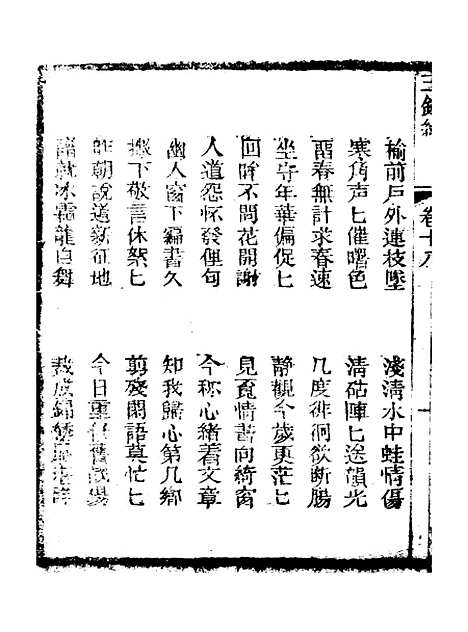 卷十八
榆前戶外連枝墜 淺清水中蛙情傷
寒角声匕催曙色 清砧陣匕送韻光
畱春無計求春速 几度徘徊欲断腸
坐守年華偏促匕 靜觀今歲更茫匕
回眸不問花開謝 見頁情書向綺窗
人道怨怀發俚句 今称心緒着文章
幽人窗下編書久 知我歸心第几鄉
下敬言休絮匕 剪殘閑語莫忙匕
昨朝說道新征地 今日重
就冰霜龍自舞 裁成錦